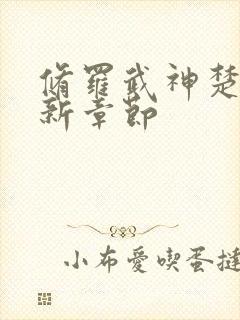 脩羅武神楚
新章節
小布愛喫蛋撻